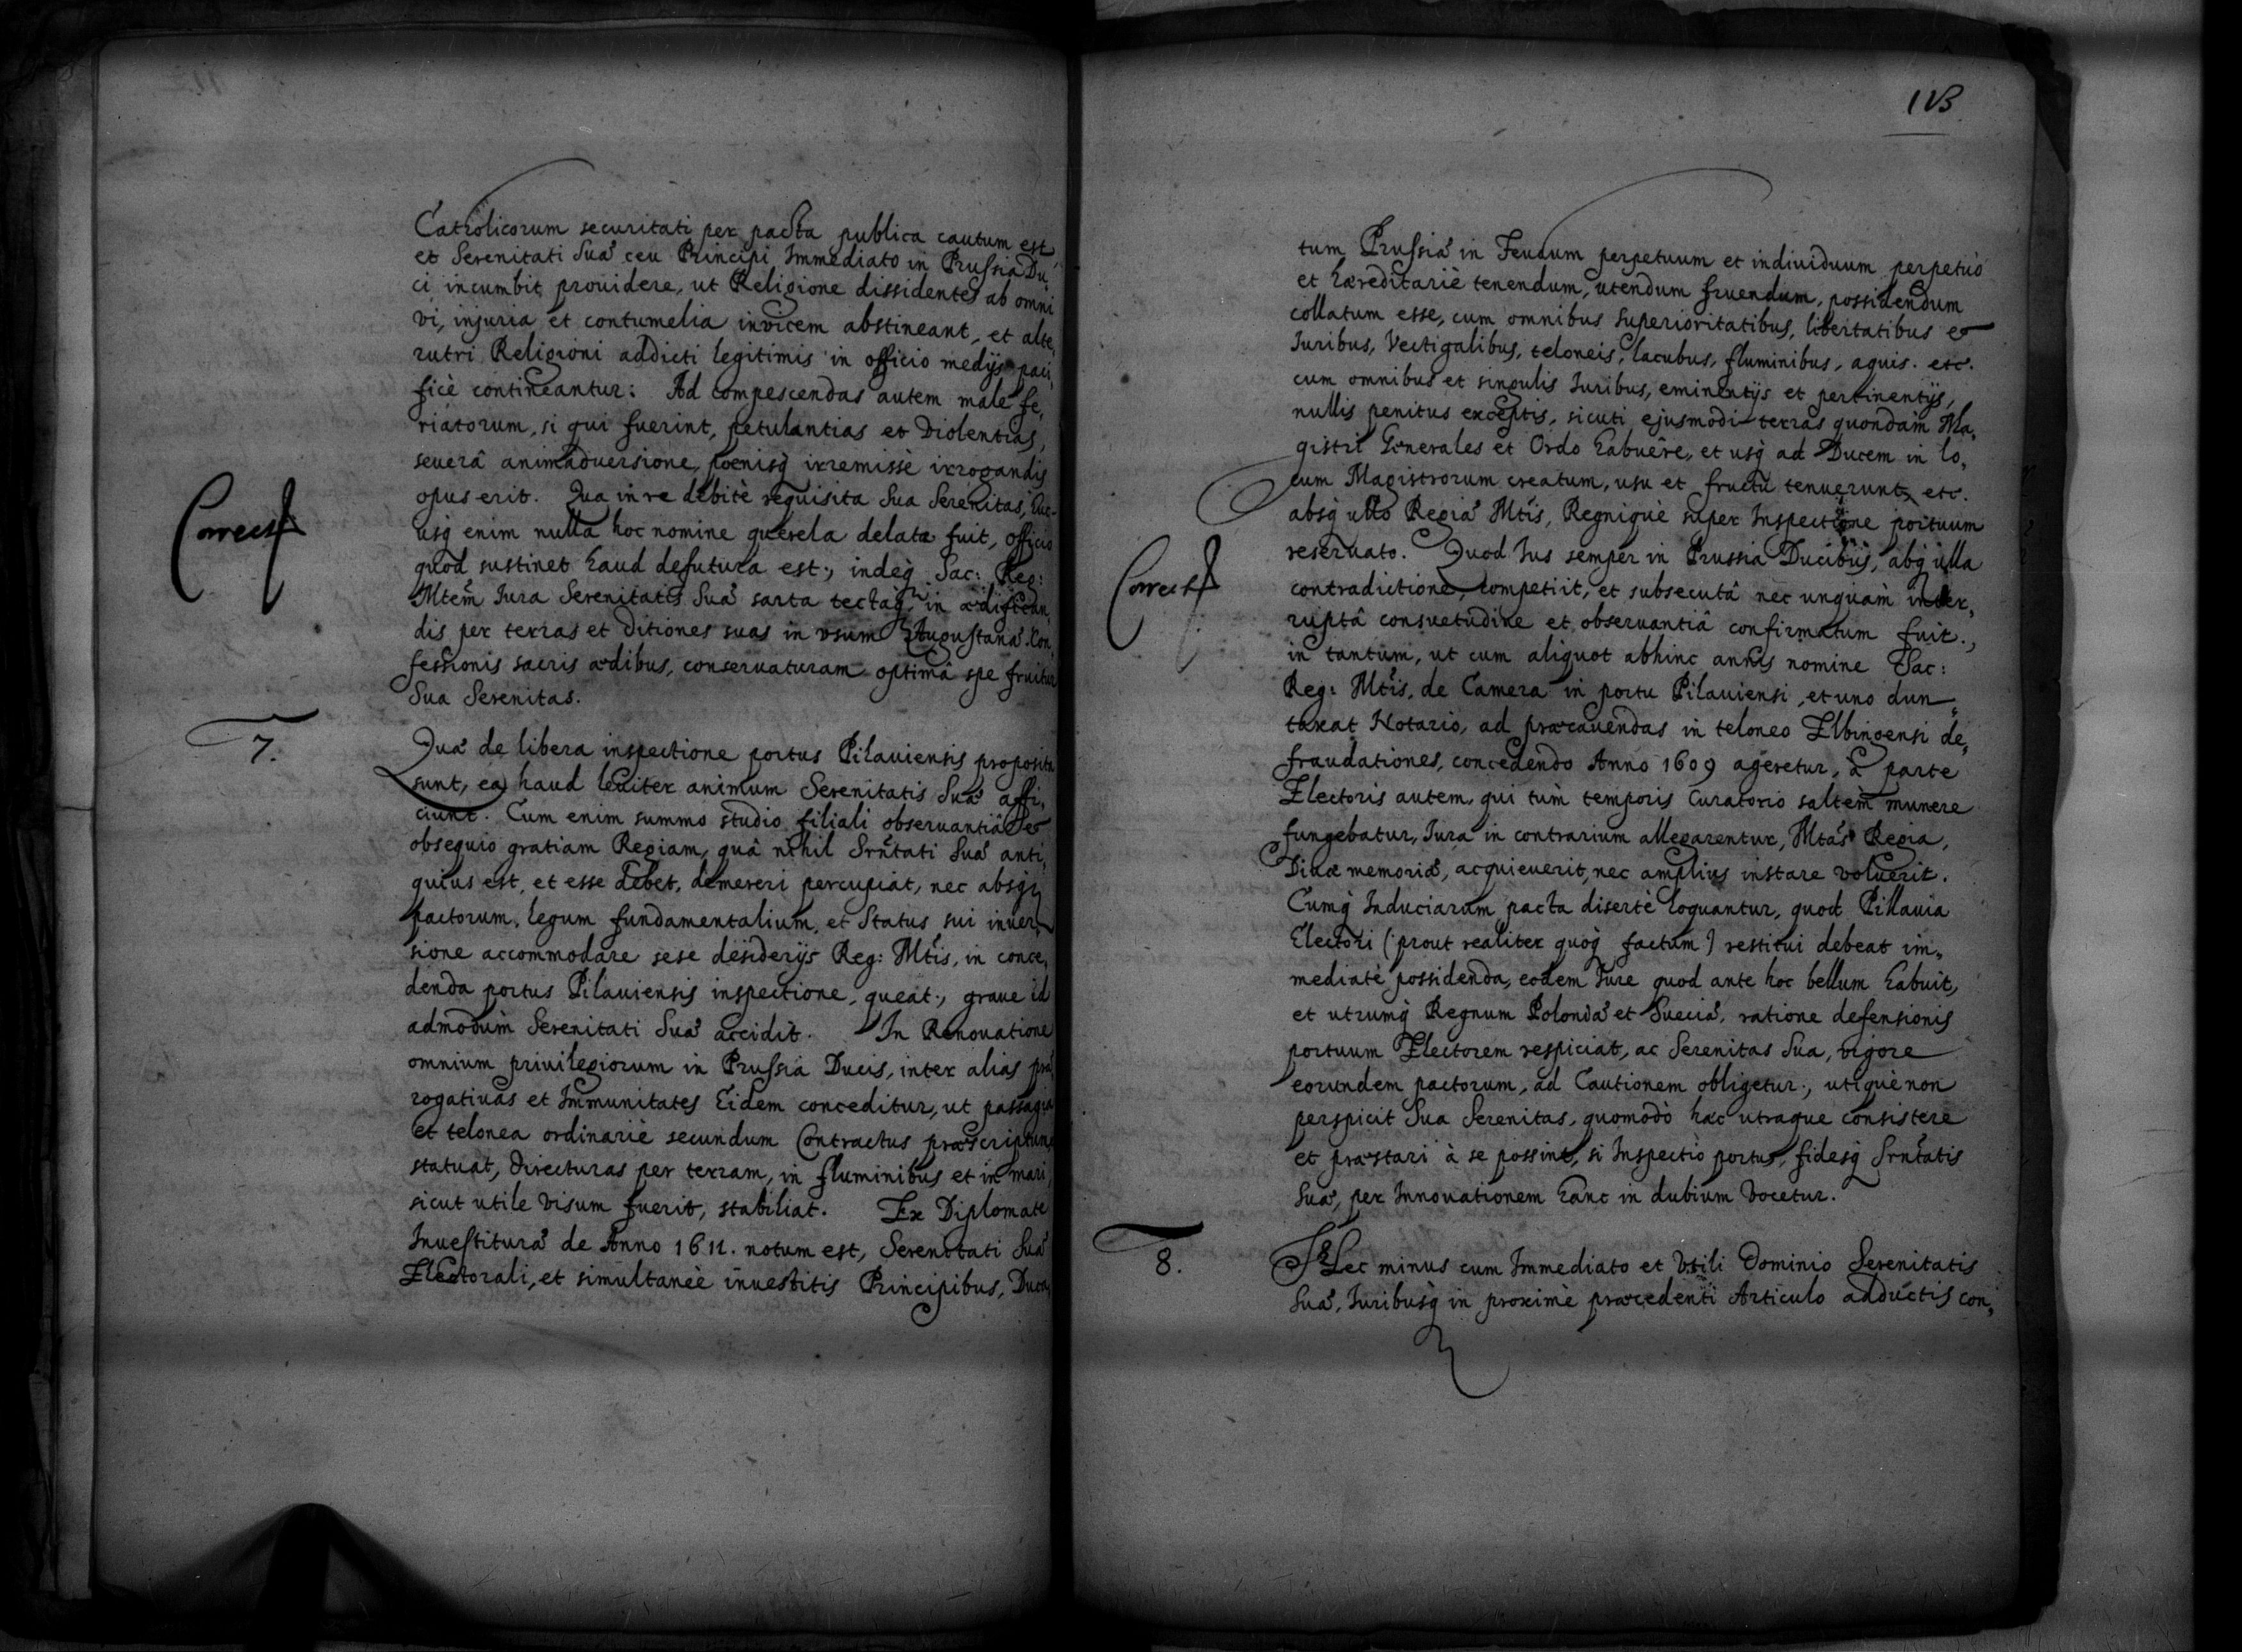 Catholicorum securitati per pacta publica cautum est,
et Serenitati Suæ ceu Principi Immediato in Prussia Du,
ci incumbit prouidere, ut Religione dissidentes ab omni
vi, injuria et contumelia invicem abstineant, et alte,
rutri Religioni addicti legitimis in officio medijs paci,
ficè contineantur: Ad compescendas autem malè fe,
riatorum, si qui fuerint, petulantias et violentias,
seuerâ animaduersione, pœnisq irremissè irrogandis
opus erit. Qua in re debitè requisita Sua Serenitas, huc-
usq enim nulla hoc nomine querela delata fuit, officio
quod sustinet haud defutura est; indeq Sac: Reg:
Mtem Iura Serenitatis Suæ sarta tectaq in ædifican,
dis per terras et ditiones suas in vsum Augustanæ Con,
fessionis sacris ædibus, conseruaturam optimâ spe fruitur
Sua Serenitas.
Correct
7.
Quæ de libera inspectione portus Pilauiensis proposita
sunt, ea haud leuiter animum Serenitatis Suæ affi,
ciunt. Cum enim summo studio filiali obseruantiâ et
obsequio gratiam Regiam, quâ nihil Srntati Suæ anti,
quius est, et esse debet, demereri percupiat, nec absq
pactorum, legum fundamentalium, et Status sui inuer,
sione accommodare sese desiderijs Reg: Mtis, in conce,
denda portus Pilauiensis inspectione, queat; graue id
admodum Serenitati Suæ accidit. In Renouatione
omnium priuilegiorum in Prussia Ducis, inter alias præ,
rogatiuas et Immunitates Eidem conceditur, ut passagia
et telonea ordinariè secundum Contractus præscriptum
statuat, directuras per terram, in fluminibus et in mari,
sicut utile visum fuerit, stabiliat. Ex Diplomate
Inuestituræ de Anno 1611. notum est, Serenitati Suæ
Electorali, et simultaneè inuestitis Principibus, Duca,
113
tum Prussiæ in Feudum perpetuum et indiuiduum perpetuò
et hæreditariè tenendum, utendum fruendum, possidendum
collatum esse, cum omnibus superioritatibus, libertatibus et
Iuribus, Vectigalibus, teloneis, lacubus, fluminibus, aquis. etc.
cum omnibus et singulis Iuribus, eminentijs et pertinentijs,
nullis penitus exceptis, sicuti ejusmodi terras quondam Ma,
gistri Generales et Ordo habuêre, et usq ad Ducem in lo,
cum Magistrorum creatum, usu et fructu tenuerunt, etc.
absq ullo Regiæ Mtis, Regnique super Inspectione portuum
reseruato. Quod Ius semper in Prussia Ducibus, absq ulla
contradictione, competiit, et subsecutâ nec unquam inter,
ruptâ consuetudine et obseruantiâ confirmatum fuit;
in tantum, ut cum aliquot abhinc annis nomine Sac:
Reg: Mtis, de Camera in portu Pilauiensi, et uno dun,
taxat Notario, ad præcauendas in teloneo Elbingensi de,
fraudationes, concedendo Anno 1609 ageretur, à parte
Electoris autem, qui tum temporis Curatorio saltem munere
fungebatur, Iura in contrarium allegarentur, Mtas Regia,
Diuæ memoriæ, acquieuerit, nec amplius instare voluerit.
Cumq Induciarum pacta disertè loquantur, quod Pillauia
Electori (prout realiter quoq factum) restitui debeat im,
mediatè possidenda, eodem Iure quod ante hoc bellum habuit,
et utrumq Regnum Poloniæ et Sueciæ, ratione defensionis
portuum Electorem respiciat, ac Serenitas Sua, vigore
eorundem pactorum, ad Cautionem obligetur; utique non
perspicit Sua Serenitas, quomodò hæc utraque consistere
et præstari à se possint, si Inspectio portus, fidesq Srntatis
Suæ, per Innouationem hanc in dubium vocetur.
Correct
8.
Nec minus cum Immediato et Vtili Dominio Serenitatis
Suæ, Iuribusq in proximè præcedenti Articulo adductis con,